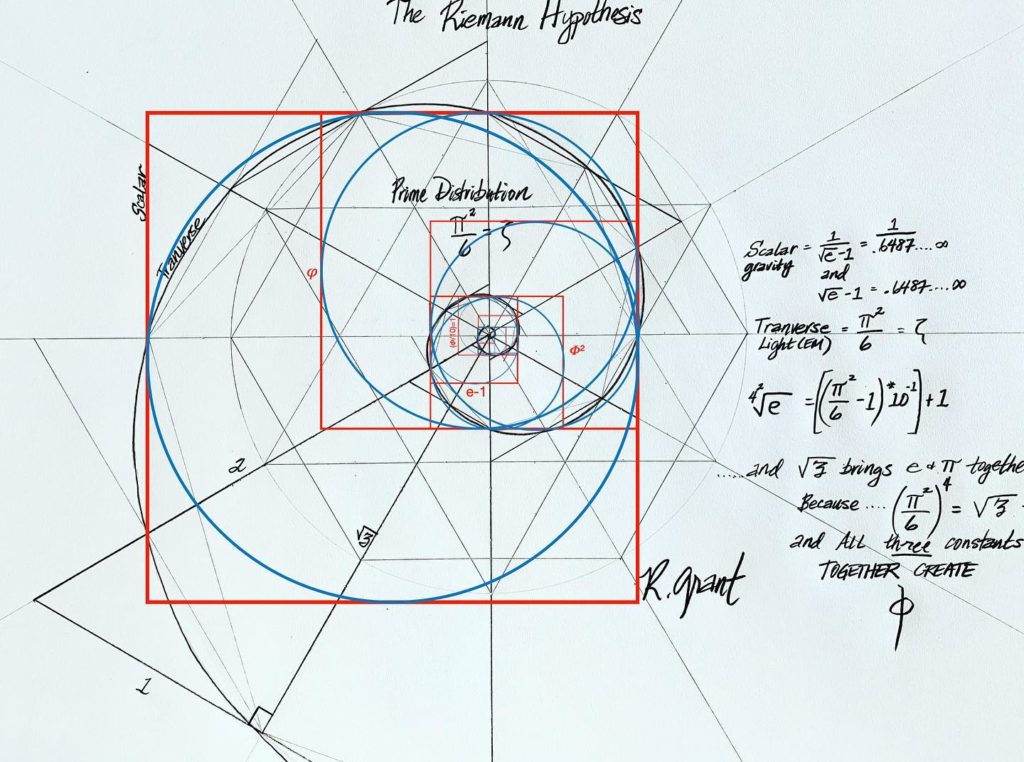 The Riemann Hypothesis
Scalar
Tranverse
Prime Distribution
π²/6 = ζ
φ
Φ²
e-1
2
√3
1
Scalar gravity = 1/(√e-1) = 1/.6487....∞
and
√e-1 = .6487....∞
Tranverse Light(EM) = π²/6 = ζ
= [((π²/6 -1)*10⁻¹]+1
.....and √3 brings e & π togethe
Because .... (π²/6)⁴ = √3
and ALL three constants
TOGETHER CREATE
ϕ
R.Grant